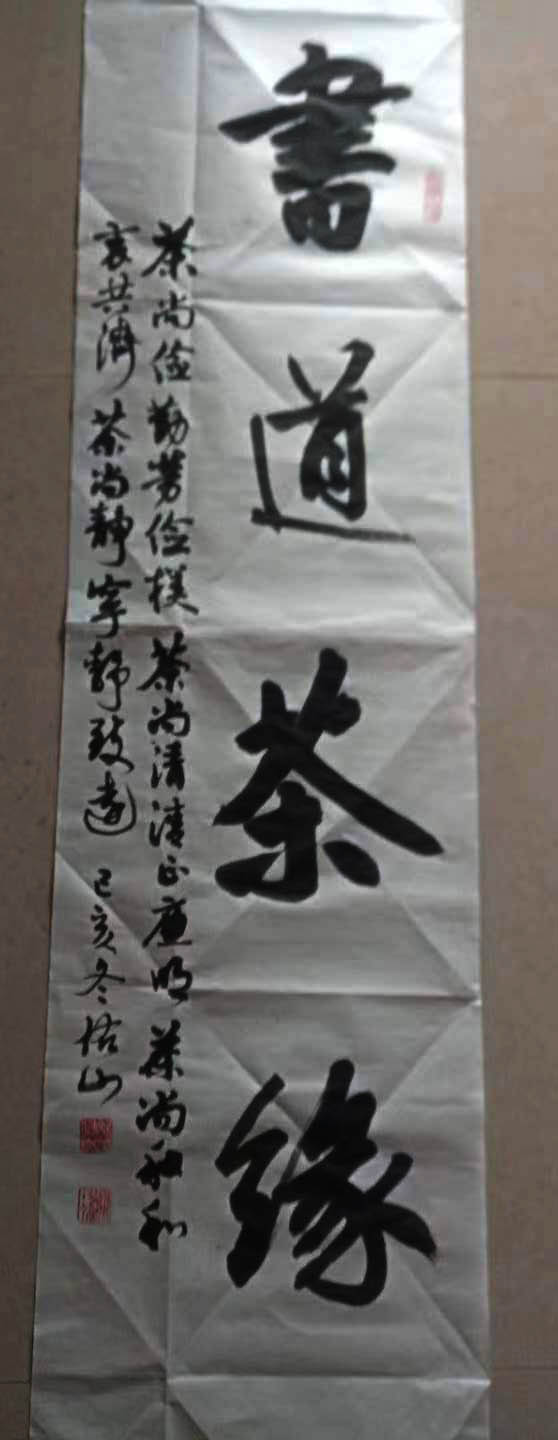 書道茶缘
茶尚俭勤劳俭朴茶尚清清正廉明茶尚和和
衷共济茶尚静宁静致远己亥冬佑山